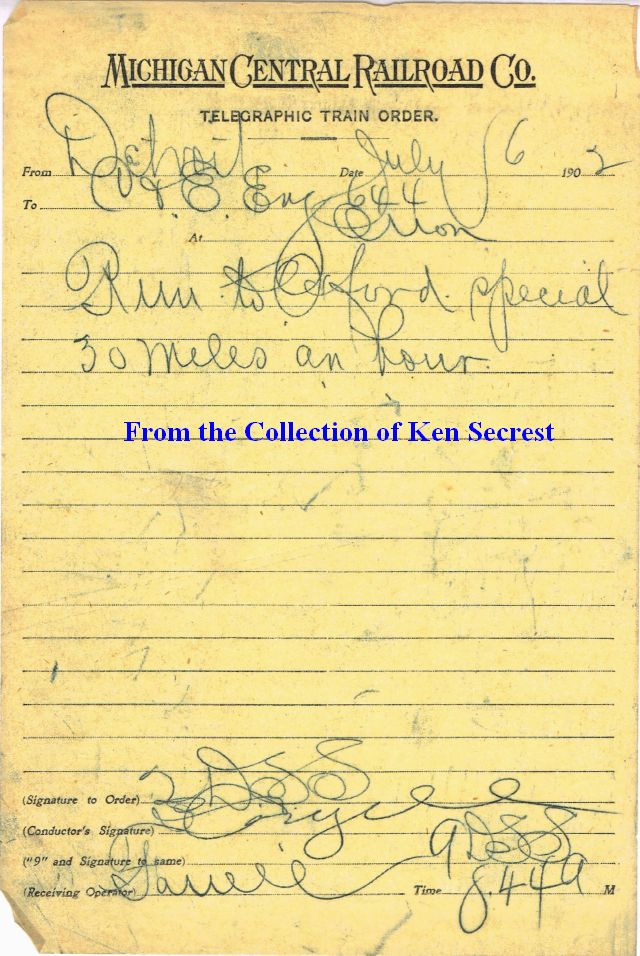 MICHIGAN CENTRAL RAILROAD CO.
TELEGRAPHIC TRAIN ORDER.
From Detroit Date July 6 1902
To C & E Eng 644
At Orion
Run to Oxford special
30 miles an hour.
From the Collection of Ken Secrest
(Signature to Order)
(Conductor's Signature)
("9" and Signature to same)
(Receiving Operator) Time 8.44 A M